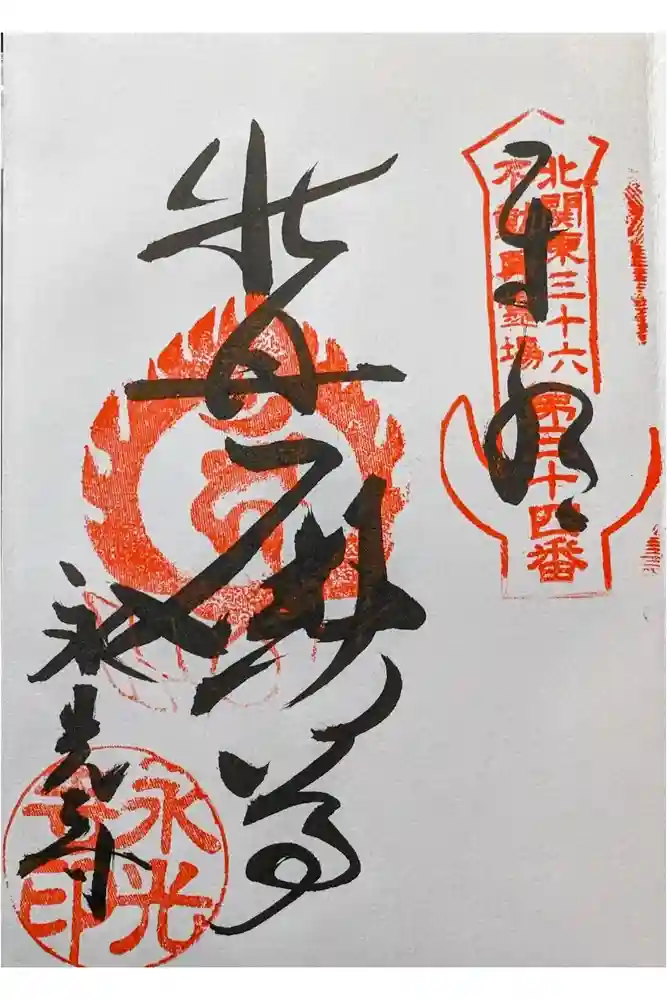 奉拝
北関東三十六
不動尊霊場
第三十四番
不動尊
永光寺
永光
寺印